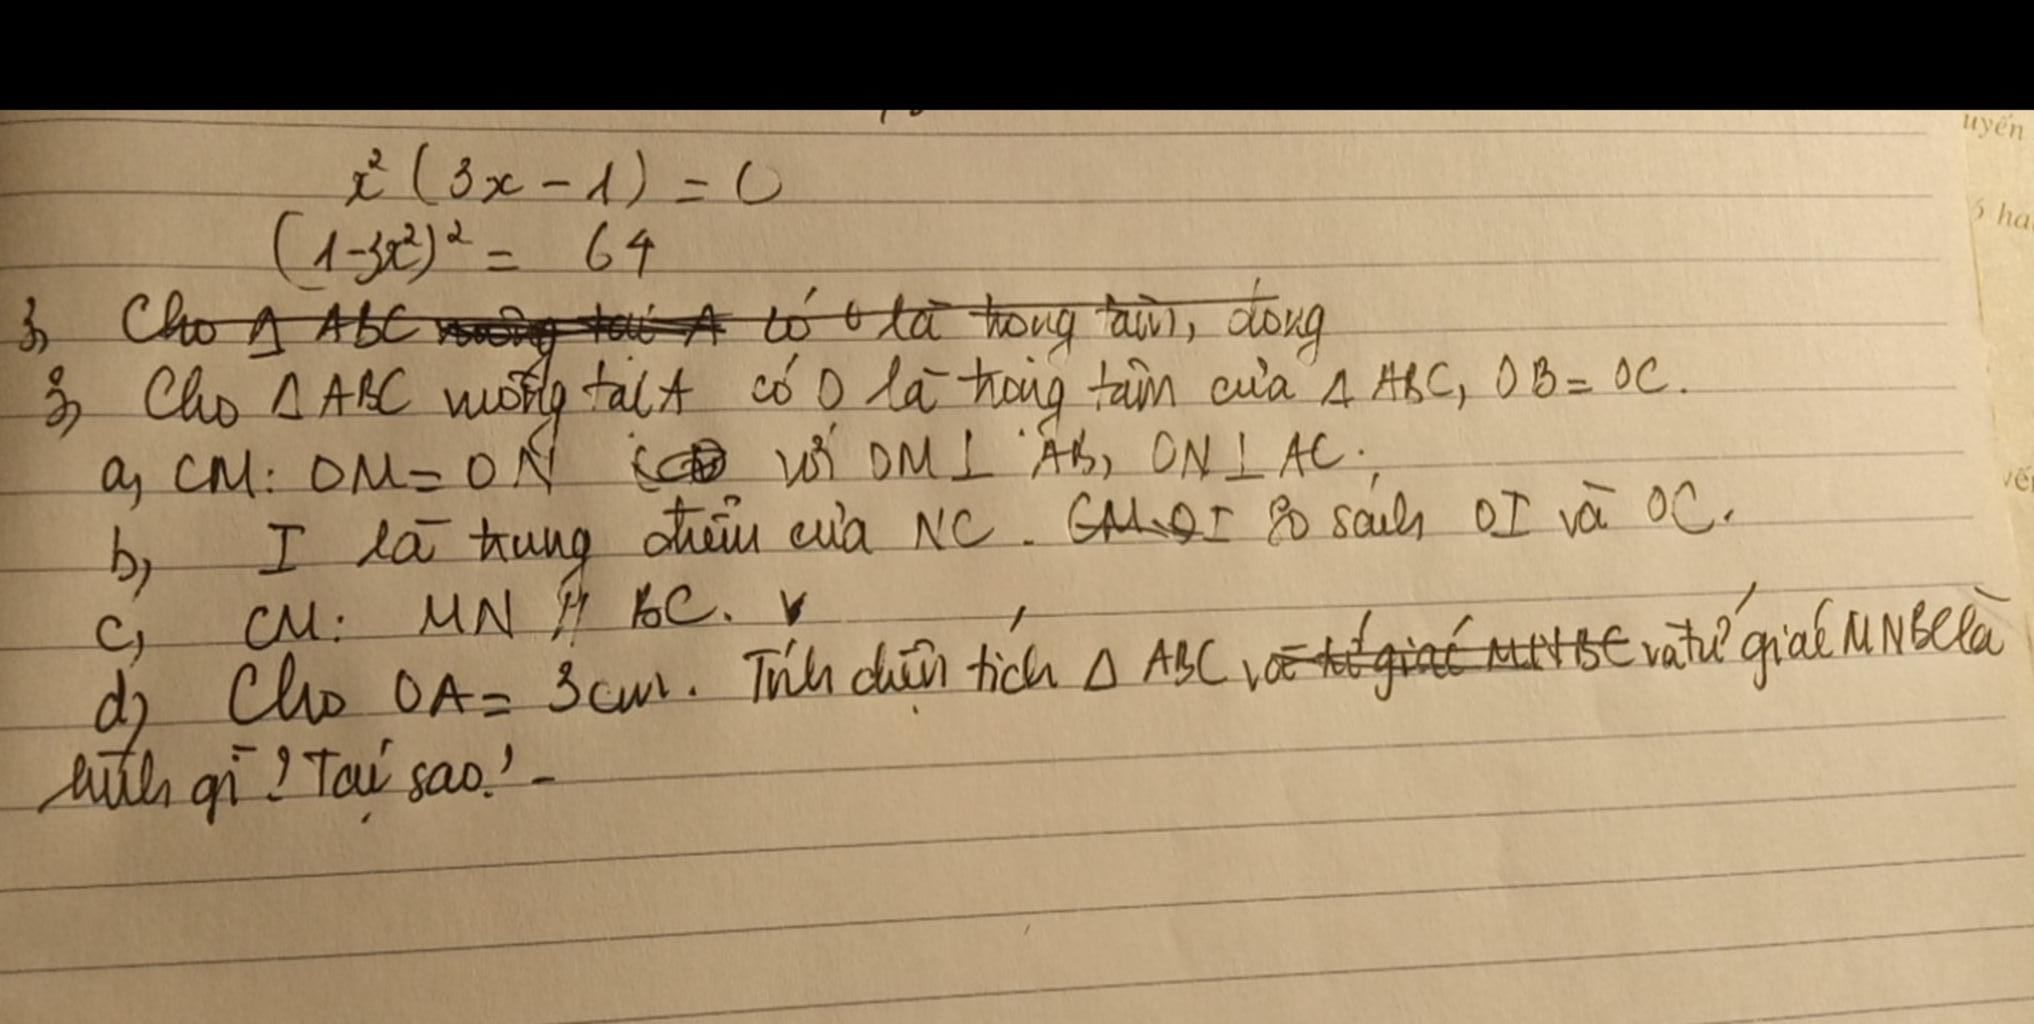 uyến
x² (3x - 1) = 0
ó ha
(1-3x²)² = 64
3, Cho Δ ABC vuông tại A có O là trọng tâm, đong
3, Cho Δ ABC vuông tại A có O là trọng tâm của Δ ABC, OB = OC.
a, CM: OM = ON với OM ⊥ AB, ON ⊥ AC.
b, I là trung điểm của NC. CM OI so sánh OI và OC.
c, CM: MN // BC. v
d, Cho OA = 3cm. Tính diện tích Δ ABC và tứ giác MNBC và tứ giác MNBC là
hình gì? Tại sao? -